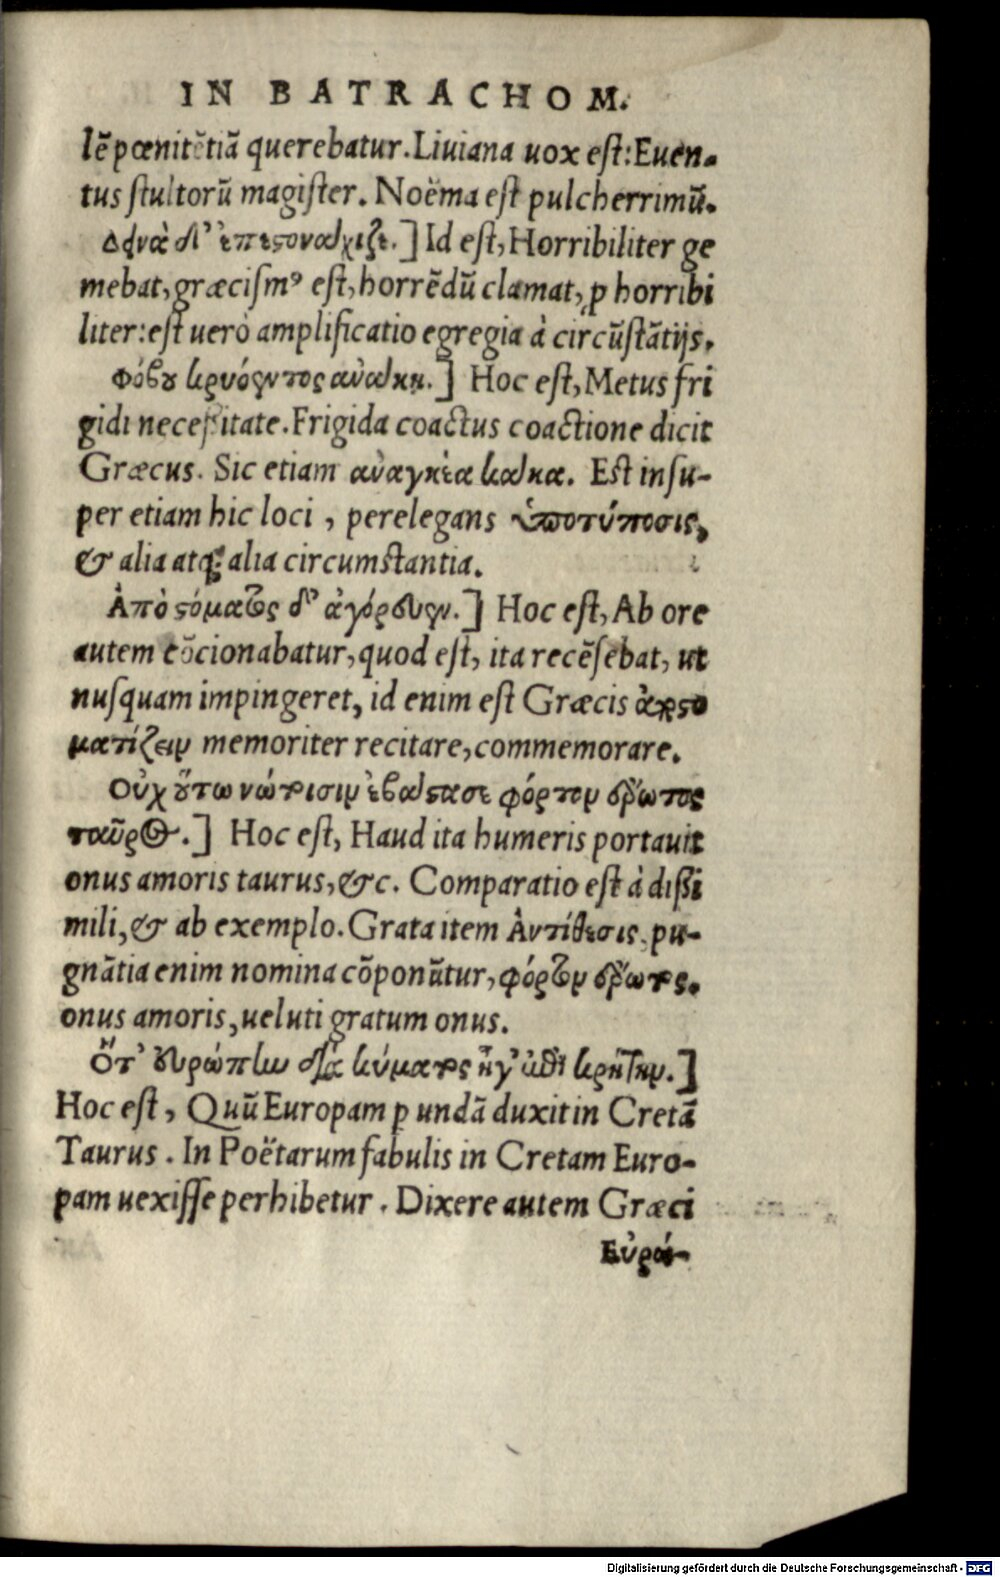 IN BATRACHOM.
lē pœnitētiā querebatur. Liuiana uox est: Euen-
tus stultorū magister. Noëma est pulcherrimū.
Δεινὰ δ' ἐπεστονάχιζε.] Id est, Horribiliter ge
mebat, græcismꝰ est, horrēdū clamat, ꝓ horribi
liter: est uerò amplificatio egregia à circūstātijs.
Φόβου κρυόεντος ἀνάγκη.] Hoc est, Metus fri
gidi necessitate. Frigida coactus coactione dicit
Græcus. Sic etiam Est insu-
per etiam hic loci, perelegans ὑποτύποσις,
& alia atqꝫ alia circumstantia.
Ἀπὸ στόματος δ' ἀγόρευεν.] Hoc est, Ab ore
autem cōcionabatur, quod est, ita recēsebat, ut
nusquam impingeret, id enim est Græcis ἀποστο
ματίζειν memoriter recitare, commemorare.
Οὐχ οὕτω νώτοισιν ἐβάστασε φόρτον ἔρωτος
ταῦρος.] Hoc est, Haud ita humeris portauit
onus amoris taurus, &c. Comparatio est à dissi
mili, & ab exemplo. Grata item Ἀντίθεσις, pu-
gnātia enim nomina cōponūtur, φόρτον ἔρωτος.
onus amoris, ueluti gratum onus.
Ὅτ' Εὐρώπην διὰ κύματος ἦγ' ἐπὶ κρήτην.]
Hoc est, Quū Europam ꝑ undā duxit in Cretā
Taurus. In Poëtarum fabulis in Cretam Euro-
pam uexisse perhibetur. Dixere autem Græci
Εὐρώ-
Digitalisierung gefördert durch die Deutsche Forschungsgemeinschaft - DFG